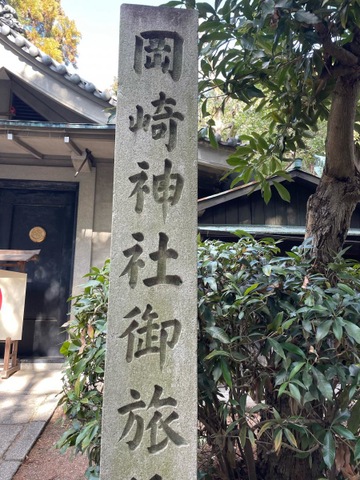 岡崎神社御旅